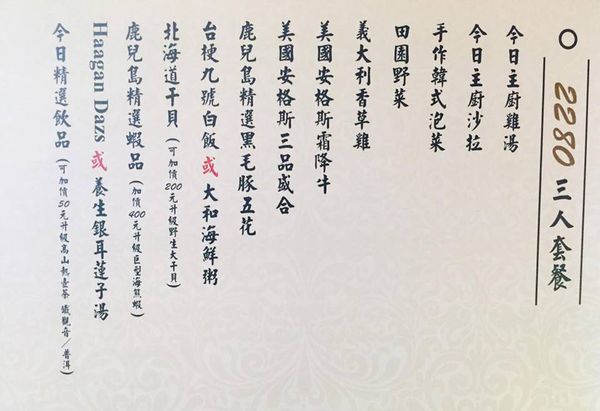 2280 三人套餐
今日主廚雞湯
今日主廚沙拉
手作韓式泡菜
田園野菜
義大利香草雞
美國安格斯霜降牛
美國安格斯三品盛合
鹿兒島精選黑毛豚五花
台梗九號白飯 或 大和海鮮粥
北海道干貝(可加價200元升級野生大干貝)
鹿兒島精選蝦品(加價400元升級巨型海熊蝦)
Haagan Dazs 或 養生銀耳蓮子湯
今日精選飲品(可加價50元升級高山熱壺茶 鐵觀音/普洱)